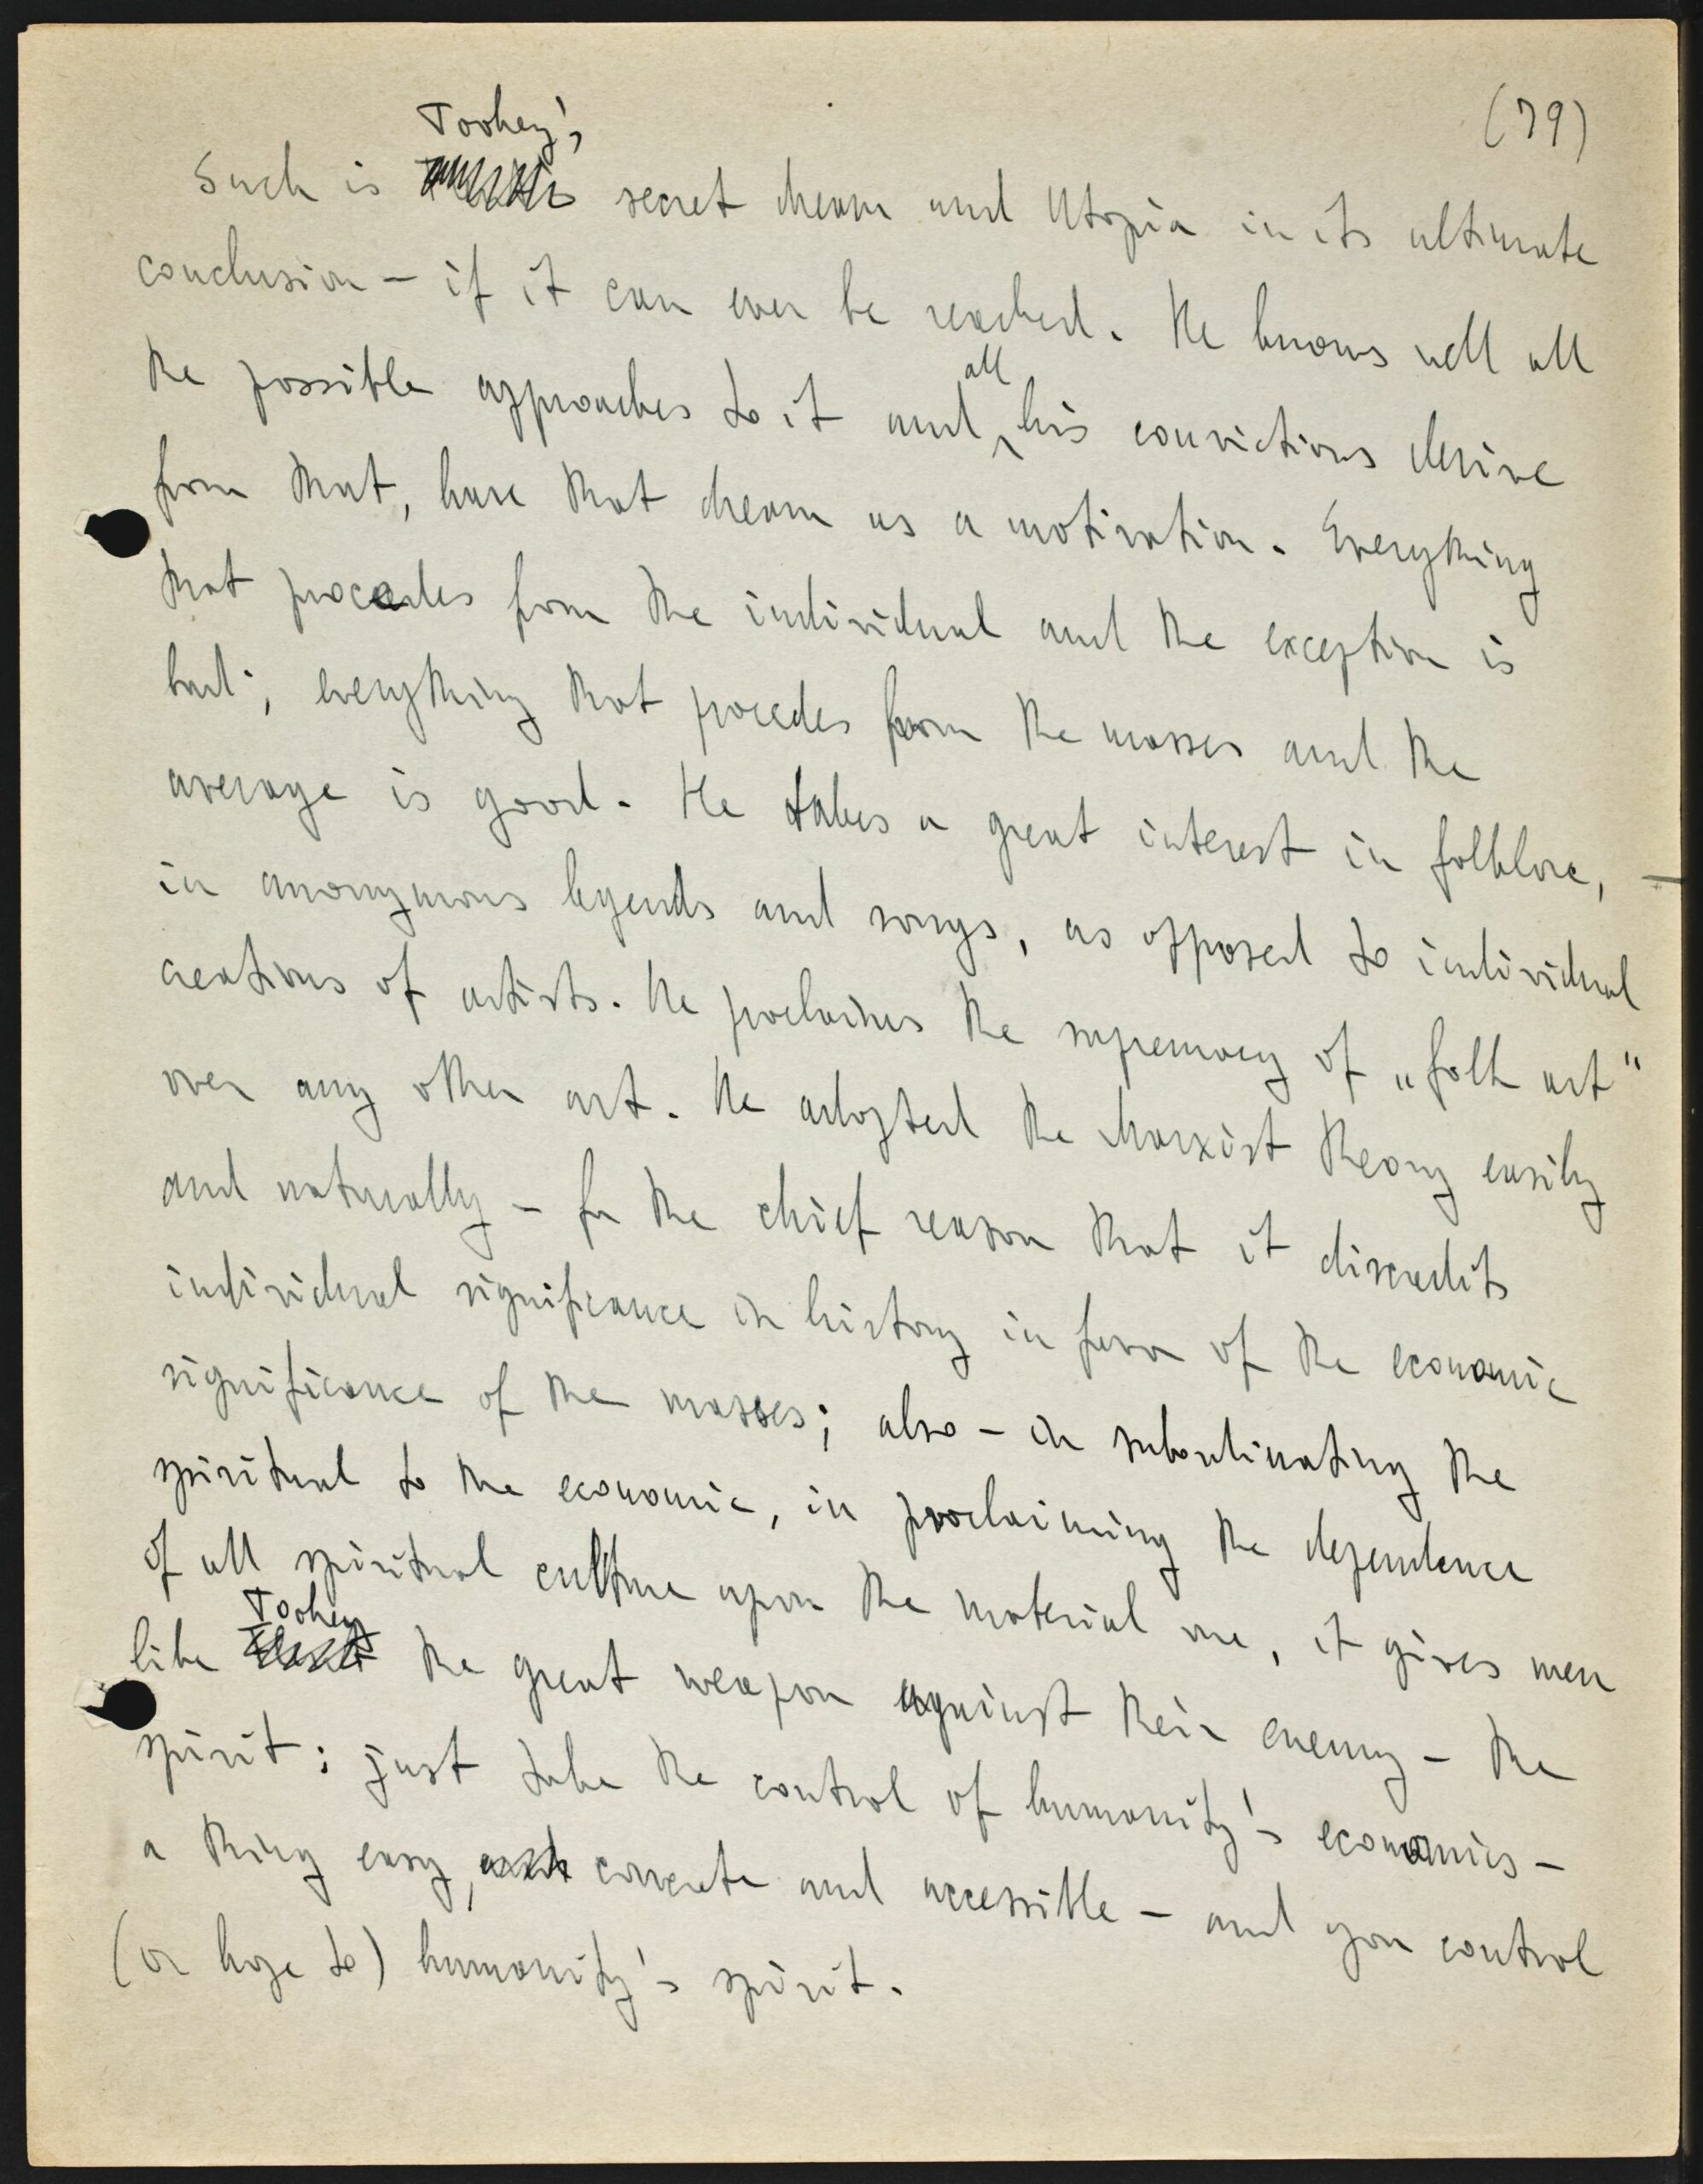 (79)
Toohey's
Such is secret dream and Utopia in its ultimate
conclusion — if it can ever be reached. He knows well all
all
the possible approaches to it and his convictions derive
from that, have that dream as a motivation. Everything
that procedes from the individual and the exception is
bad; everything that procedes from the masses and the
average is good. He takes a great interest in folklore, —
in anonymous legends and songs, as opposed to individual
creations of artists. He proclaims the supremacy of „folk art"
over any other art. He adopted the Marxist theory easily
and naturally — for the chief reason that it discredits
individual significance in history in favor of the economic
significance of the masses; also — in subordinating the
spiritual to the economic, in proclaiming the dependence
of all spiritual culture upon the material one, it gives men
Toohey
like the great weapon against their enemy — the
spirit: just take the control of humanity's economics —
a thing easy, concrete and accessible — and you control
(or hope to) humanity's spirit.